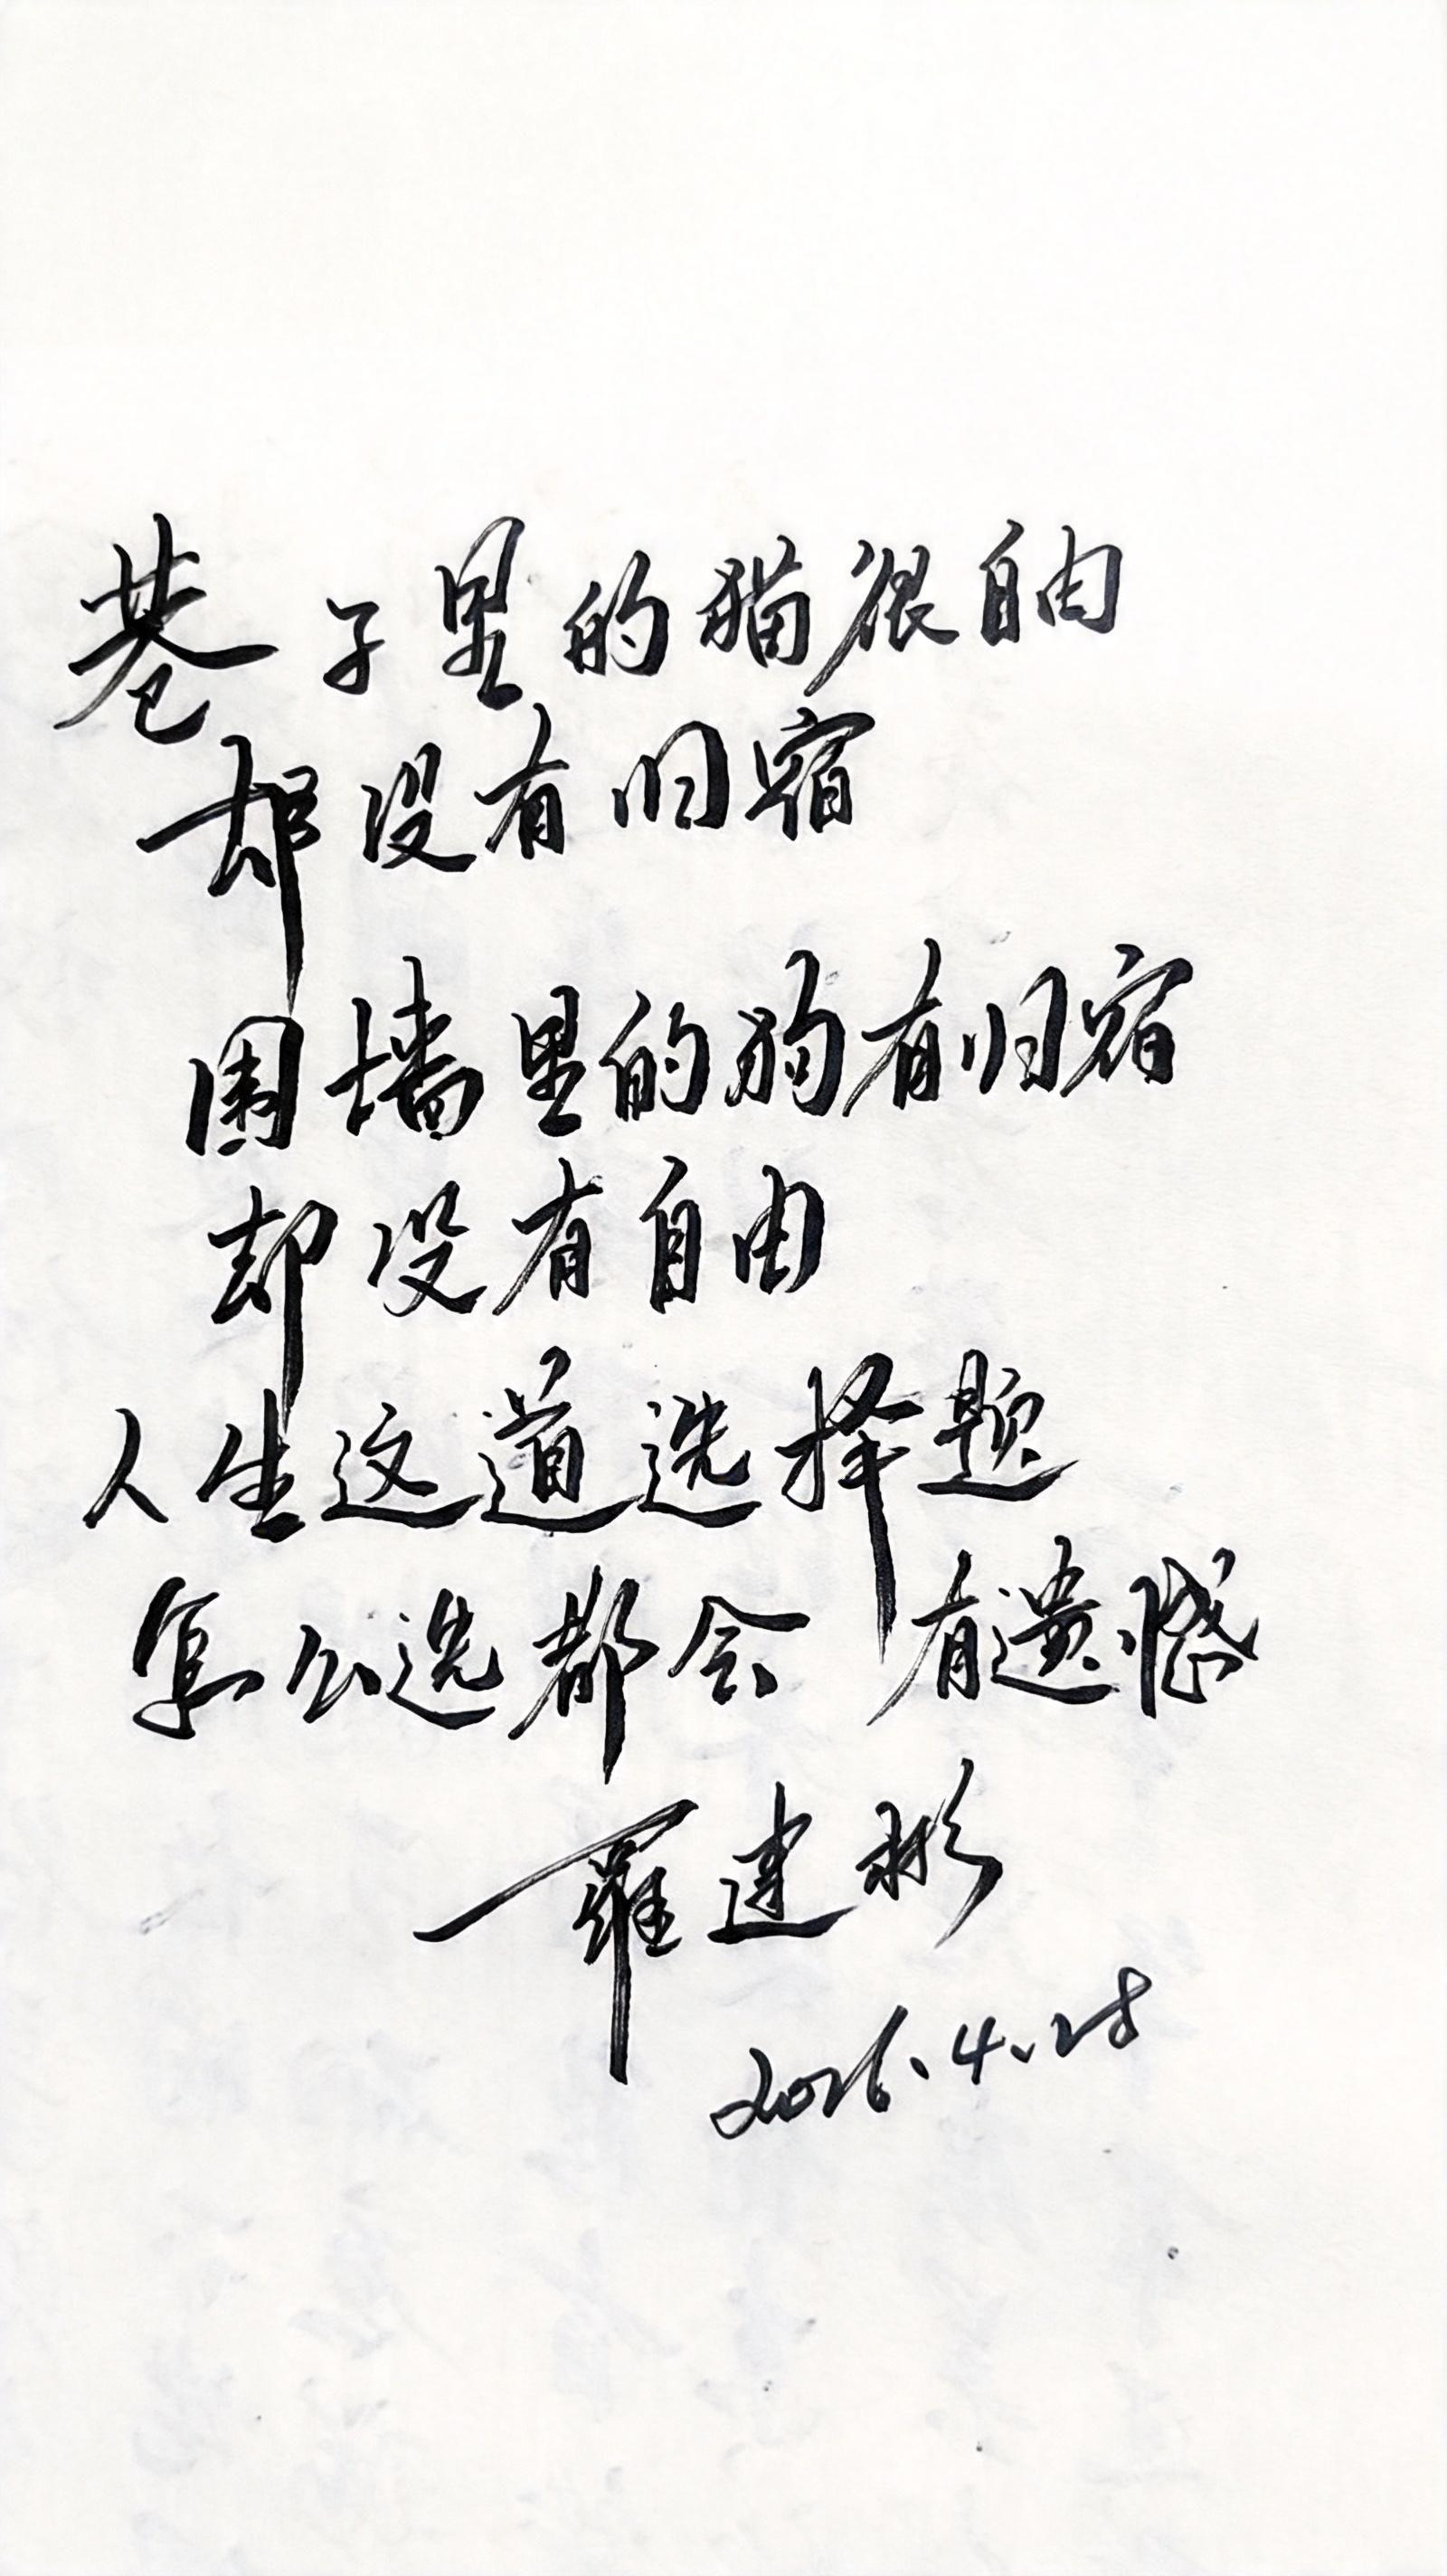 巷子里的猫很自由
却没有归宿
围墙里的狗有归宿
却没有自由
人生这道选择题
怎么选都会 有遗憾
羅建彬
2026.4.28